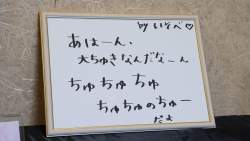 by いなべ♡
あはーん、
大ちゅきなんだなーん
ちゅちゅちゅ
ちゅちゅのちゅー
だよ